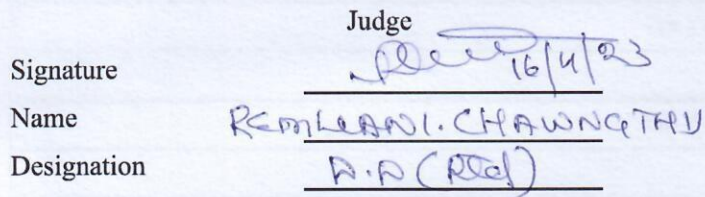 Judge
Signature 16/4/23
Name REMLIANI. CHAWNGTHU
Designation (Rtd)